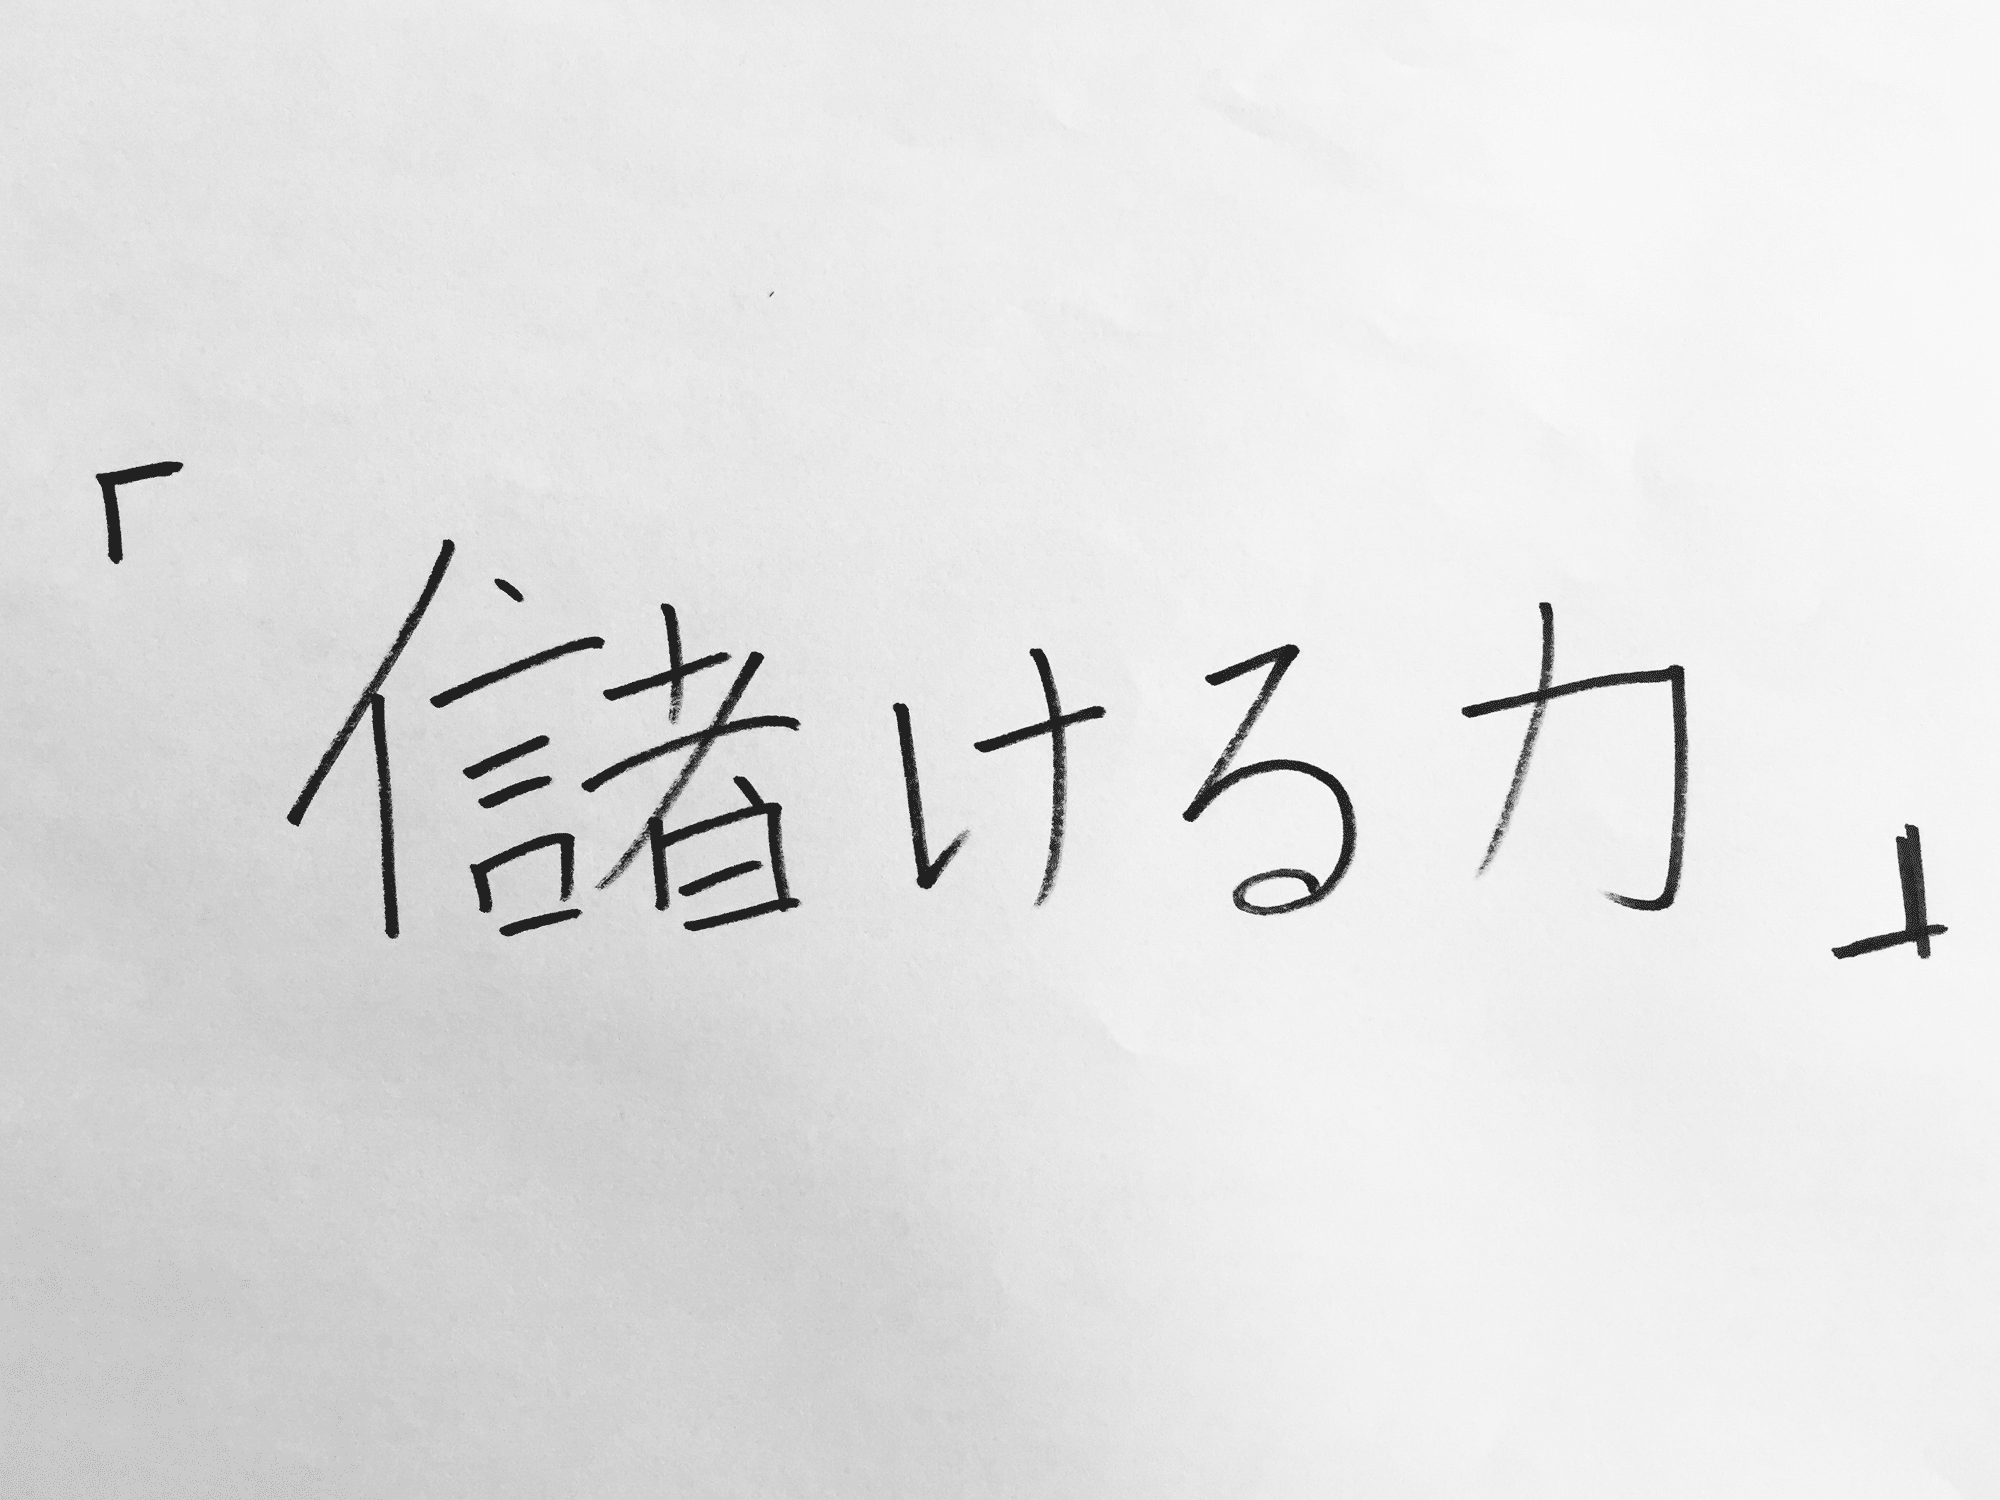 「儲ける力」